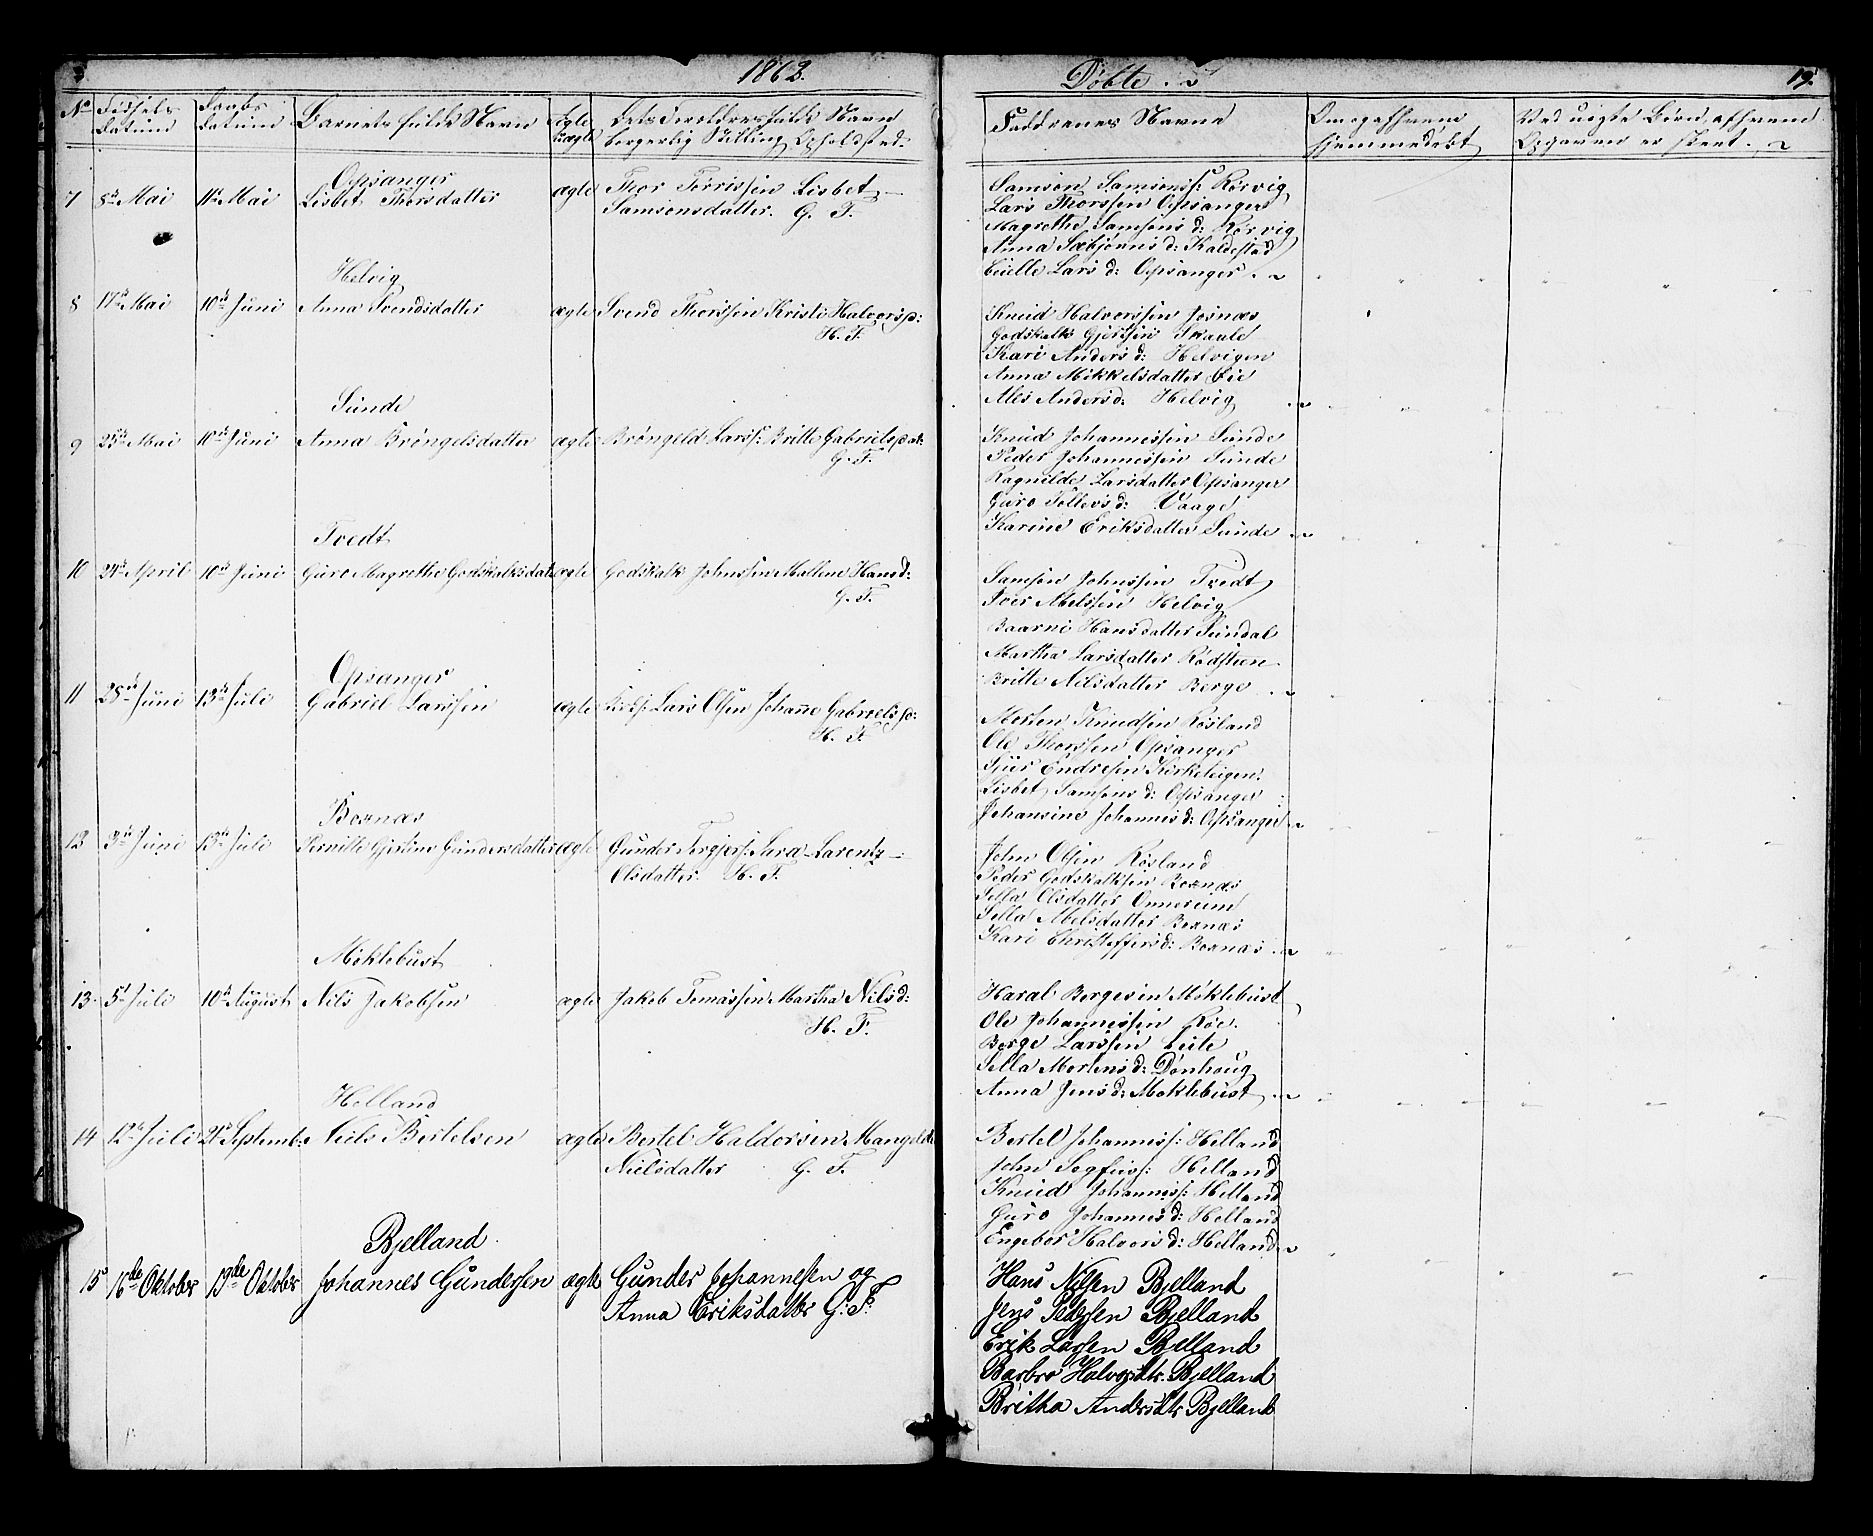 1863.
Døbte.
19.
No Fødsels Datum
Daabs Datum
Barnets fulde Navn
Ægte Uægte
Forældres fulde Navn borgerlig Stilling Opholdsted.
Faddrenes Navne
Om og af hvem hjemmedøbt
Ved uægte Børn, af hvem Opgaven er skeet.
Opsanger
7 8de Mai 11te Mai Lisbet Thorsdatter ægte Thor Torrissen Lisbet
Samsonsdatter. G. F.
Samson Samsons: Rørvig
Lars Thorssen Opsanger
Magrethe Samsons d: Rørvig
Anna Sæbjønns d: Kaldestad
Lars d: Opsanger.
Helvig
8 17de Mai 10de Juni Anna Svendsdatter ægte Svend Thorssen Kristi Halvors
H. F.
Knud Halvorssen Josnæs
Godskalk Gjertsen Skaale
Kari Anders d: Helvigen
Anna Mikkelsdatter Øie
Ales Andersd: Helvig
Sunde
9 25de Mai 10de Juni Anna Brøngelsdatter ægte Brøngeld Larss: Britte Gabriels
G. F.
Knud Johannessen Sunde
Peder Johannessen Sunde
Ragnilde Larsdatter Opsanger
Guro Tollevs d: Vaage
Karine Eriksdatter Sunde
Tvedt
10 24de April 10de Juni Guro Magrethe Godskalksdat: ægte Godskalk Johnssen Mallene Hans d:
G. F.
Samson Johnssen Tvedt
Iver Melssen Helvig
Baarni Hansdatter Sundal
Martha Larsdatter Rødsteen
Britte Nilsdatter Berge
Opsanger
11 28de Juni 13de Juli Gabriel Larssen ægte Lars Olsen Johanne Gabriels
H. F.
Morten Knudsen Røsland
Ole Thorssen Opsanger
Sjur Endresen Kirketeigen.
Lisbet Samsons d: Opsanger
Johansine Johannes d: Opsanger
Bognæs
12 3de Juni 13de Juli Pernille Gjertine Gundersdatter ægte Gunder Torgjers: Sara Larentz
Olsdatter. H. F.
John Olsen Røsland
Peder Godskalksen Bognæs
Sella Olsdatter Onnereim
Sella Melsdatter Bognæs
Kari Christoffersd: Bognæs
Møklebust
13 5te Juli 10de August Nils Jakobsen ægte Jakob Tomassen Martha Nils d:
H. F.
Haral Borgesen Møklebust
Ole Johannessen Røe.
Borge Larssen Leite
Sella Mortens d: Dønhoug
Anna Jens d: Møklebust
Helland
14 12te Juli 21de Septemb: Niels Bertelsen ægte Bertel Haldorsen Mangelde
Nielsdatter G. F.
Bertel Johanness: Helland
John Segfus: Helland
Knud Johanness: Helland
Guro Johannes d: Helland
Engebor Halvors d: Helland
Bjelland.
15 16de Oktober 19de Oktober Johannes Gundersen ægte Gunder Johannesen og
Anna Eriksdatter G. F.
Hans Nilsen Bjelland
Jens Pedersen Bjelland
Erik Larsen Bjelland
Barbro Halvorsdtr. Bjelland
Britha Andersdtr Bjelland